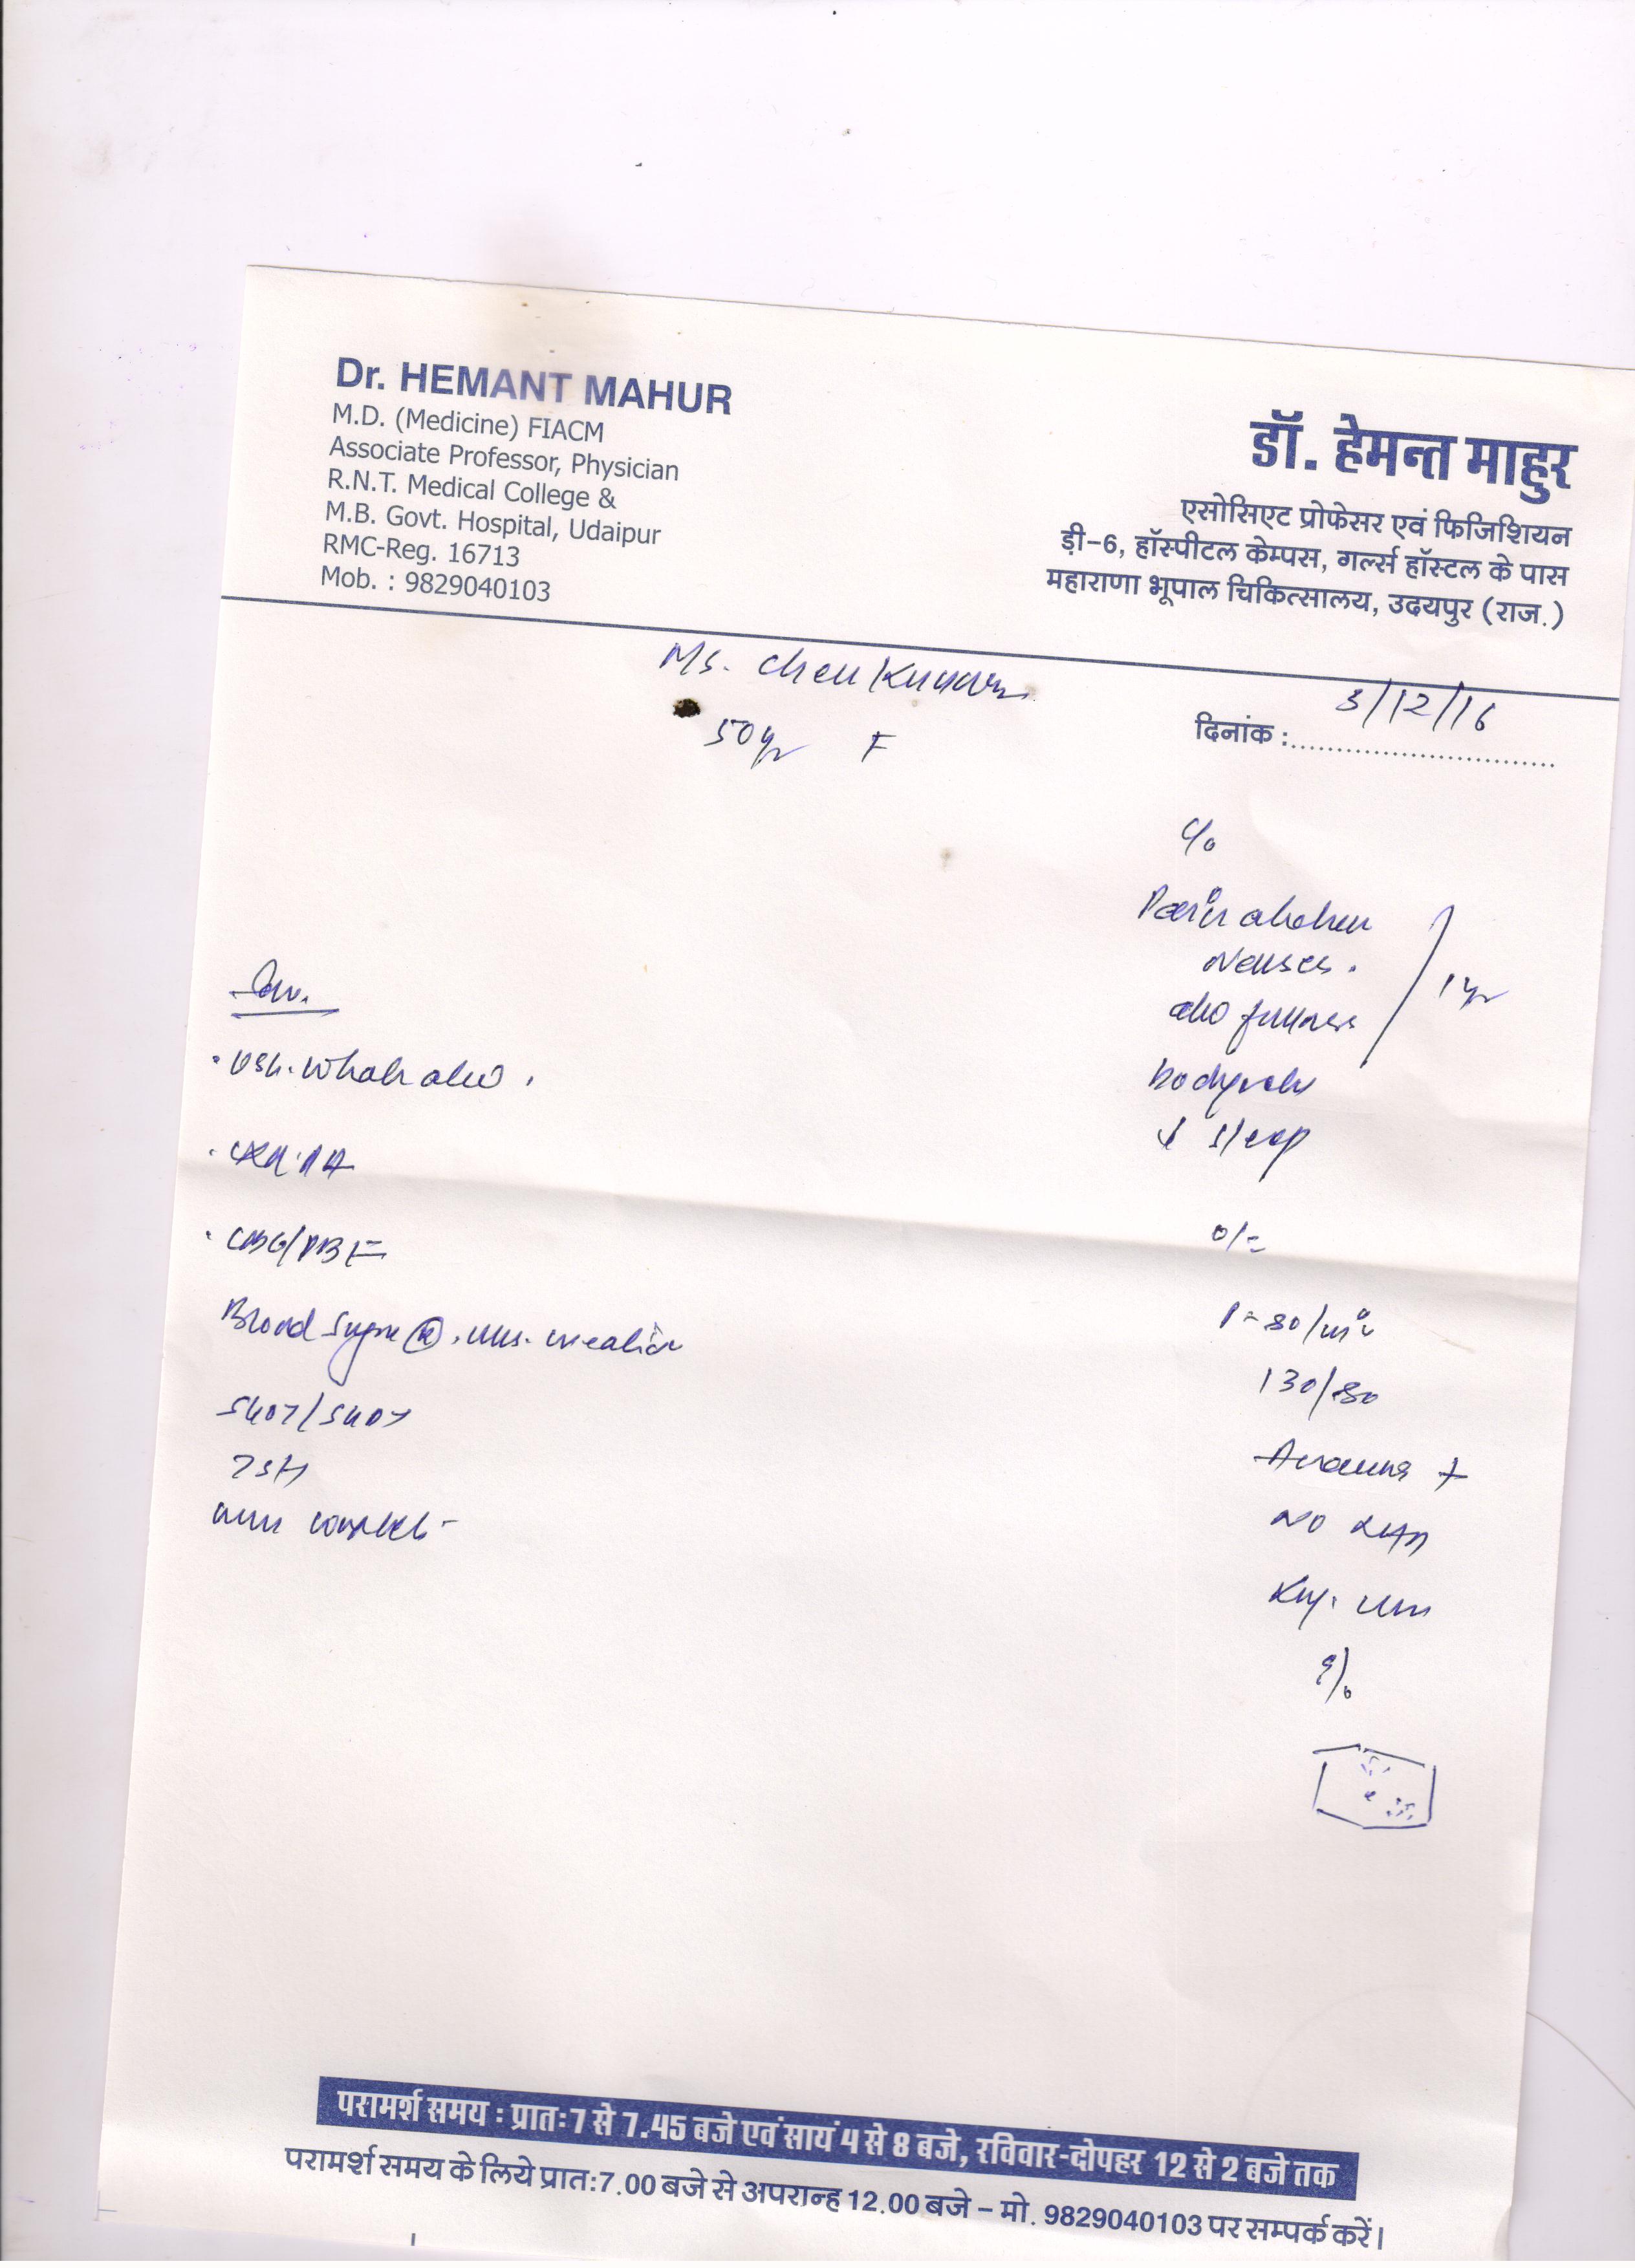 Dr. HEMANT MAHUR
M.D. (Medicine) FIACM
Associate Professor, Physician
R.N.T. Medical College &
M.B. Govt. Hospital, Udaipur
RMC-Reg. 16713
Mob. : 9829040103
डॉ. हेमन्त माहुर
एसोसिएट प्रोफेसर एवं फिजिशियन
ड़ी-6, हॉस्पीटल केम्पस, गर्ल्स हॉस्टल के पास
महाराणा भूपाल चिकित्सालय, उदयपुर (राज.)
Ms.
50yr F
दिनांक : 3/12/16
c/o
Pain
1 yr
↓ sleep
USG. whole abd.
CXR. PA
CBC/PBF
Blood Sugar (R),
SGOT/SGPT
TSH
Urine complete
O/E
P = 80/min
130/80
Anaemia +
NO
P/A
परामर्श समय : प्रातः 7 से 7.45 बजे एवं सायं 4 से 8 बजे, रविवार-दोपहर 12 से 2 बजे तक
परामर्श समय के लिये प्रातः 7.00 बजे से अपरान्ह 12.00 बजे – मो. 9829040103 पर सम्पर्क करें।